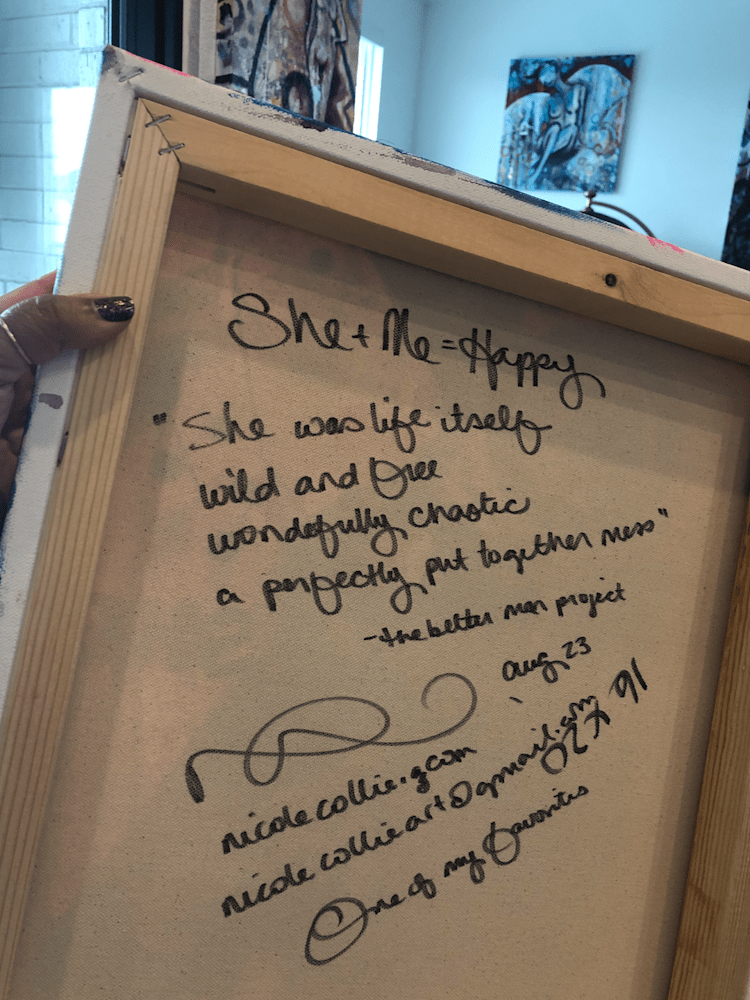 She + Me = Happy
"She was life itself
wild and free
wondefully chaotic
a perfectly put together mess"
-the better man project
aug 23
nicolecollie.g.com
nicolecollieart@gmail.com
One of my favorites